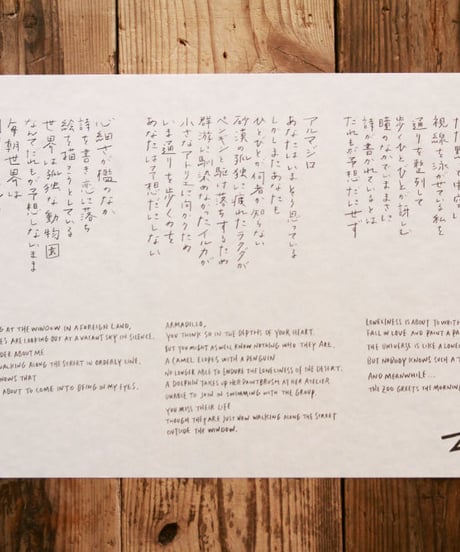 視線を泳がせている私を
通りを整列して
歩くひとびとが訝しむ
瞳のなかでいままさに
詩が書かれているとは
だれもが予想だにせず
アルマジロ
あなたはいまそう思っている
しかしまたあなたも
ひとびとが何者か知らない
砂漠の孤独に疲れたラクダが
ペンギンと駆け落ちするため
群游に馴染めなかったイルカが
小さなアトリエに向かうため
いま通りを歩くのを
あなたは予想だにしない
心細さが檻のなか
詩を書き恋に落ち
絵を描こうとしている
世界は孤独な動物園
なんてだれもが予想しないまま
毎朝世界は
AT THE WINDOW IN A FOREIGN LAND,
ES ARE LOOKING OUT AT A VACANT SKY IN SILENCE.
DER ABOUT ME
WALKING ALONG THE STREET IN ORDERLY LINE.
NOWS THAT
ABOUT TO COME INTO BEING IN MY EYES.
ARMADILLO,
YOU THINK SO IN THE DEPTHS OF YOUR HEART.
BUT YOU MIGHT AS WELL KNOW NOTHING WHEN THEY ARE.
A CAMEL ELOPES WITH A PENGUIN
NO LONGER ABLE TO ENDURE THE LONELINESS OF THE DESERT.
A DOLPHIN TAKES UP HER PAINTBRUSH AT HER ATELIER
UNABLE TO JOIN IN SWIMMING WITH THE GROUP.
YOU MISS THEIR LIFE
THOUGH THEY ARE JUST NOW WALKING ALONG THE STREET
OUTSIDE THE WINDOW.
LONELINESS IS ABOUT TO WRIT
FALL IN LOVE AND PAINT A PA
THE UNIVERSE IS LIKE A LONE
BUT NOBODY KNOWS SUCH A T
AND MEANWHILE...
THE ZOO GREETS THE MORNIN